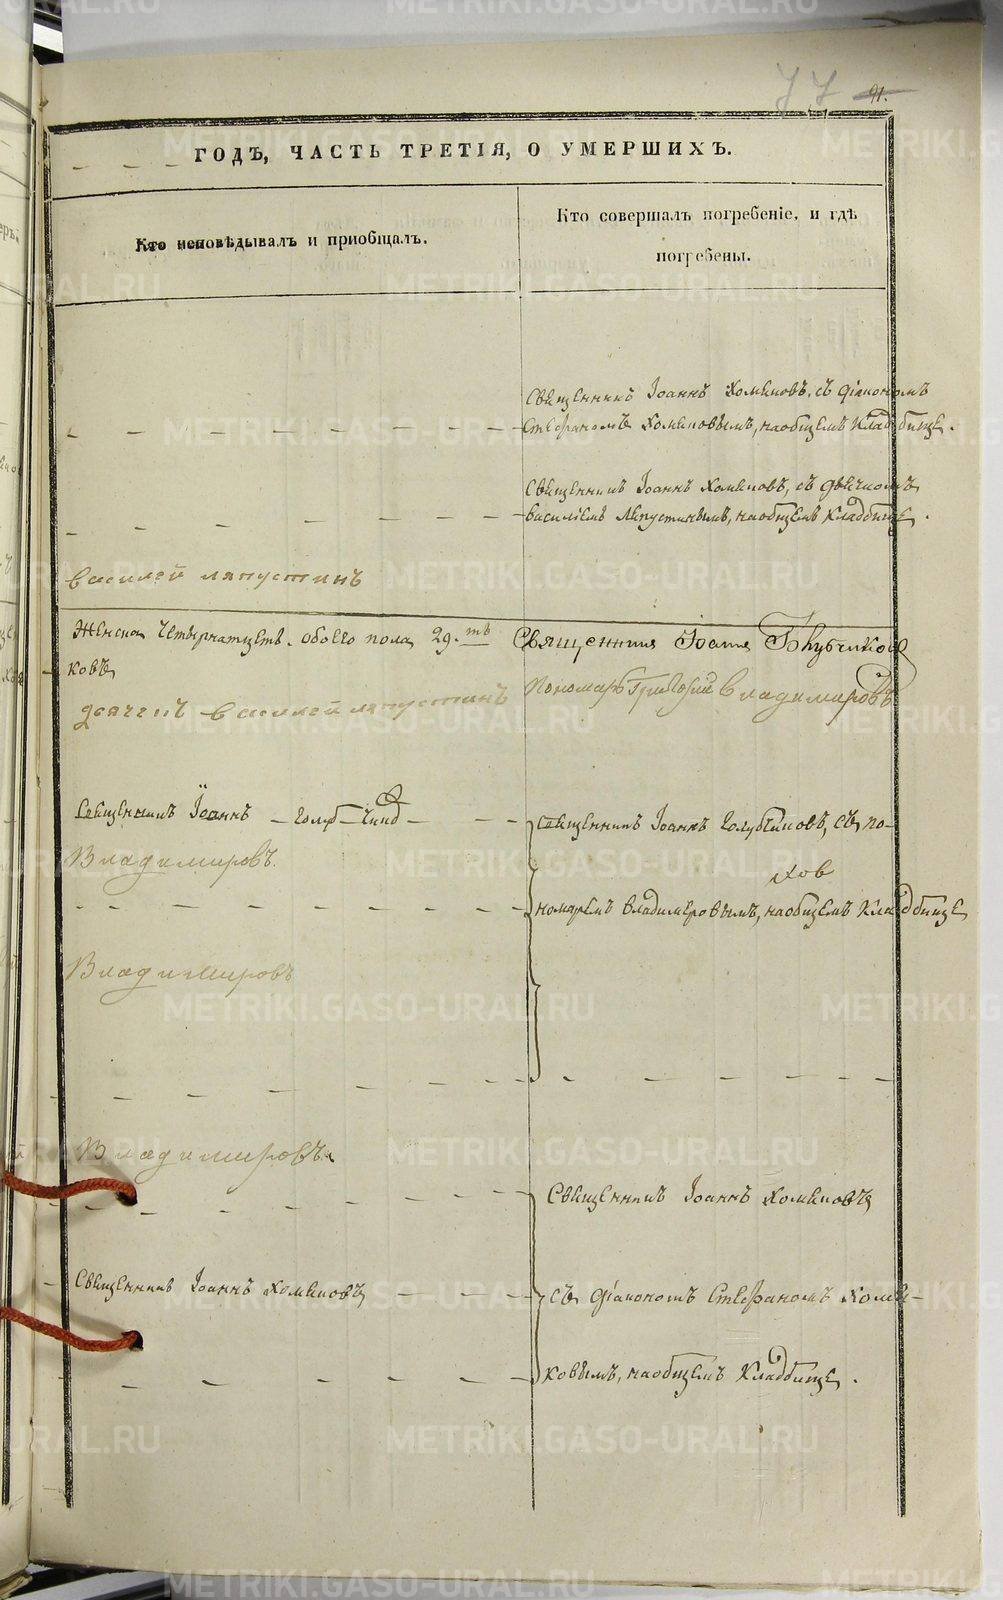 77 91.
ГОДЪ, ЧАСТЬ ТРЕТІЯ, О УМЕРШИХЪ.
Кто исповѣдывалъ и пріобщалъ.
Кто совершалъ погребеніе, и гдѣ
погребены.
Священникъ Іоаннъ Хомяковъ, съ діакономъ
Стефаномъ Хомяковымъ, на общемъ кладбище.
Священникъ Іоаннъ Хомяковъ, съ дьячкомъ
Василіемъ Ляпустинымъ, на общемъ кладбище.
Василей Ляпустинъ
Женска четырнатцеть. обоего пола 29.ть
Священникъ Іоаннъ Голубчиков
ковъ
дьячекъ Василей Ляпустинъ
Пономарь Григорий Владимировъ
Священникъ Іоаннъ – Голуб – чико –
Священникъ Іоаннъ Голубчиковъ, съ по-
Владимировъ.
ков
номаремъ Владимеровымъ, на общемъ кладбище
Владимировъ
Владимировъ
Священникъ Іоаннъ Хомяковъ
Священникъ Іоаннъ Хомяковъ
съ діакономъ Стефаномъ Хомя-
ковымъ, на общемъ кладбище.
METRIKI.GASO-URAL.RU